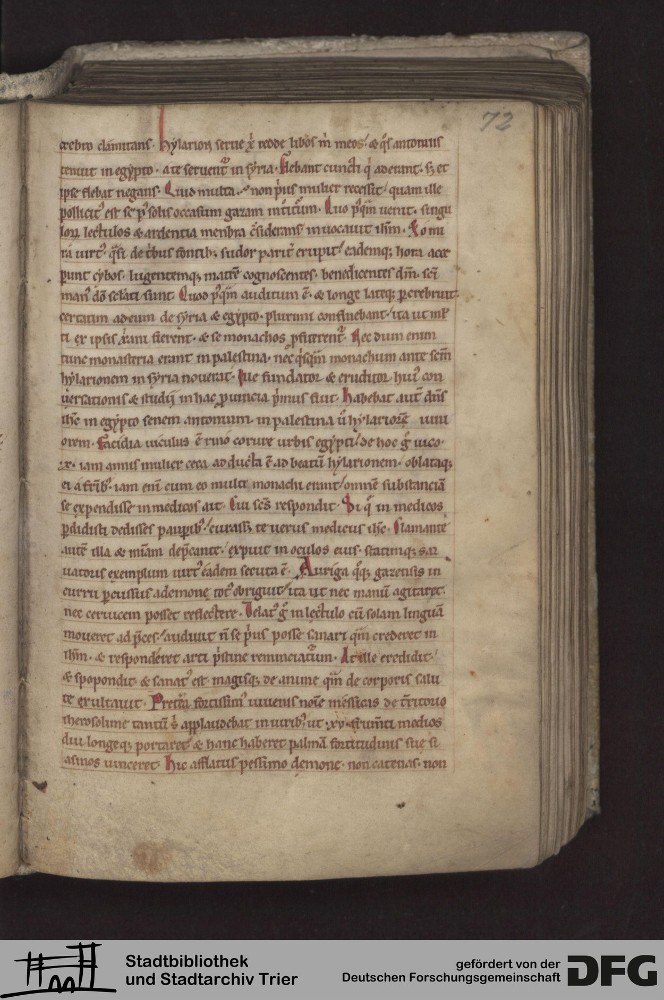 72
crebro clamitans. hylarion serue xp̄i redde libos m̄ meos. & q̄s antonius
tenuit in egypto. a te seruent᷑ in syria. flebant cuncti q̇ aderant. sꝫ et
ipse flebat negans. Quid multa. non p̄us mulier recessit. quam ille
pollicit᷒ est se p᷒ solis occasum gazam int᷑turum. Quo p᷒qm̄ uenit. singu
lorꝫ lectulos & ardentia menbra c̄siderans inuocauit ihm̄. Et o mi
ra uirt᷒. q̄si de t᷑bus fontibꝫ sudor parit᷑ erupit. eademqꝫ hora acce
perunt cybos. lugentemqꝫ matrē cognoscentes. benedicentes dm̄. sc̄i
man᷒ dō sclati sunt. Quod p᷒qm̄ auditum ē. & longe lateqꝫ pcrebruit
certatim ad eum de syria & egypto. plurimi confluebant. ita ut ml᷑
ti ex ipsis xp̄iani fierent. & se monachos ꝓfiterent᷑. Nec dum enim
tunc monasteria erant in palestina. nec q̇sq̄m monachum ante sc̄m
hylarionem in syria nouerat. Iste fundator & eruditor hui᷒ con
uersationis & studij in hac ꝓuincia p̄mus fuit. Habebat aut̄ dn̄s
ihc in egypto senem antonium. in palestina ū hylarionē iuni
orem. Facidia uiculus ē rino corure urbis egypti. de hoc g̊ uico.
.x. iam annis mulier ceca adducta ē ad beatū hylarionem. oblataqꝫ
ei a fr̄ibꝫ. iam enī cum eo multi monachi erant. omnē substanciā
se expendisse in medicos ait. Cui sc̄s respondit. Si q̄ in medicos
pdidisti dedisses paupibꝫ. curassꝫ te uerus medicus ihc. Clamante
autē illa & mīam dep̄cante. expuit in oculos eius. statimqꝫ sal
uatoris exemplum uirt᷒ eadem secuta ē. Auriga q̇qꝫ gazensis in
curru pcussus a demone tot᷒ obriguit. ita ut nec manū agitaret.
nec ceruicem posset reflectere. Delat᷒ g̊ in lectulo cū solam linguā
moueret ad p̄ces. audiuit n̄ se p̄us posse sanari qm̄ crederet in
ihm̄. & responderet arti p̄stine renunciaturum. At ille credidit.
& spopondit & sanat᷒ est. magisqꝫ de anime qm̄ de corporis salu
te exultauit. Preterea fortissim᷒ iuuenis noīe messicas de t᷑ritorio
iherosolime tantū s᷑ applaudebat in uiribꝫ ut .xv. frumti modios
diu longeqꝫ portaret. & hanc haberet palmā fortitudinis sue si
asinos uinceret. Hic afflatus pessimo demone. non catenas. non
Stadtbibliothek
und Stadtarchiv Trier
gefördert von der
Deutschen Forschungsgemeinschaft
DFG